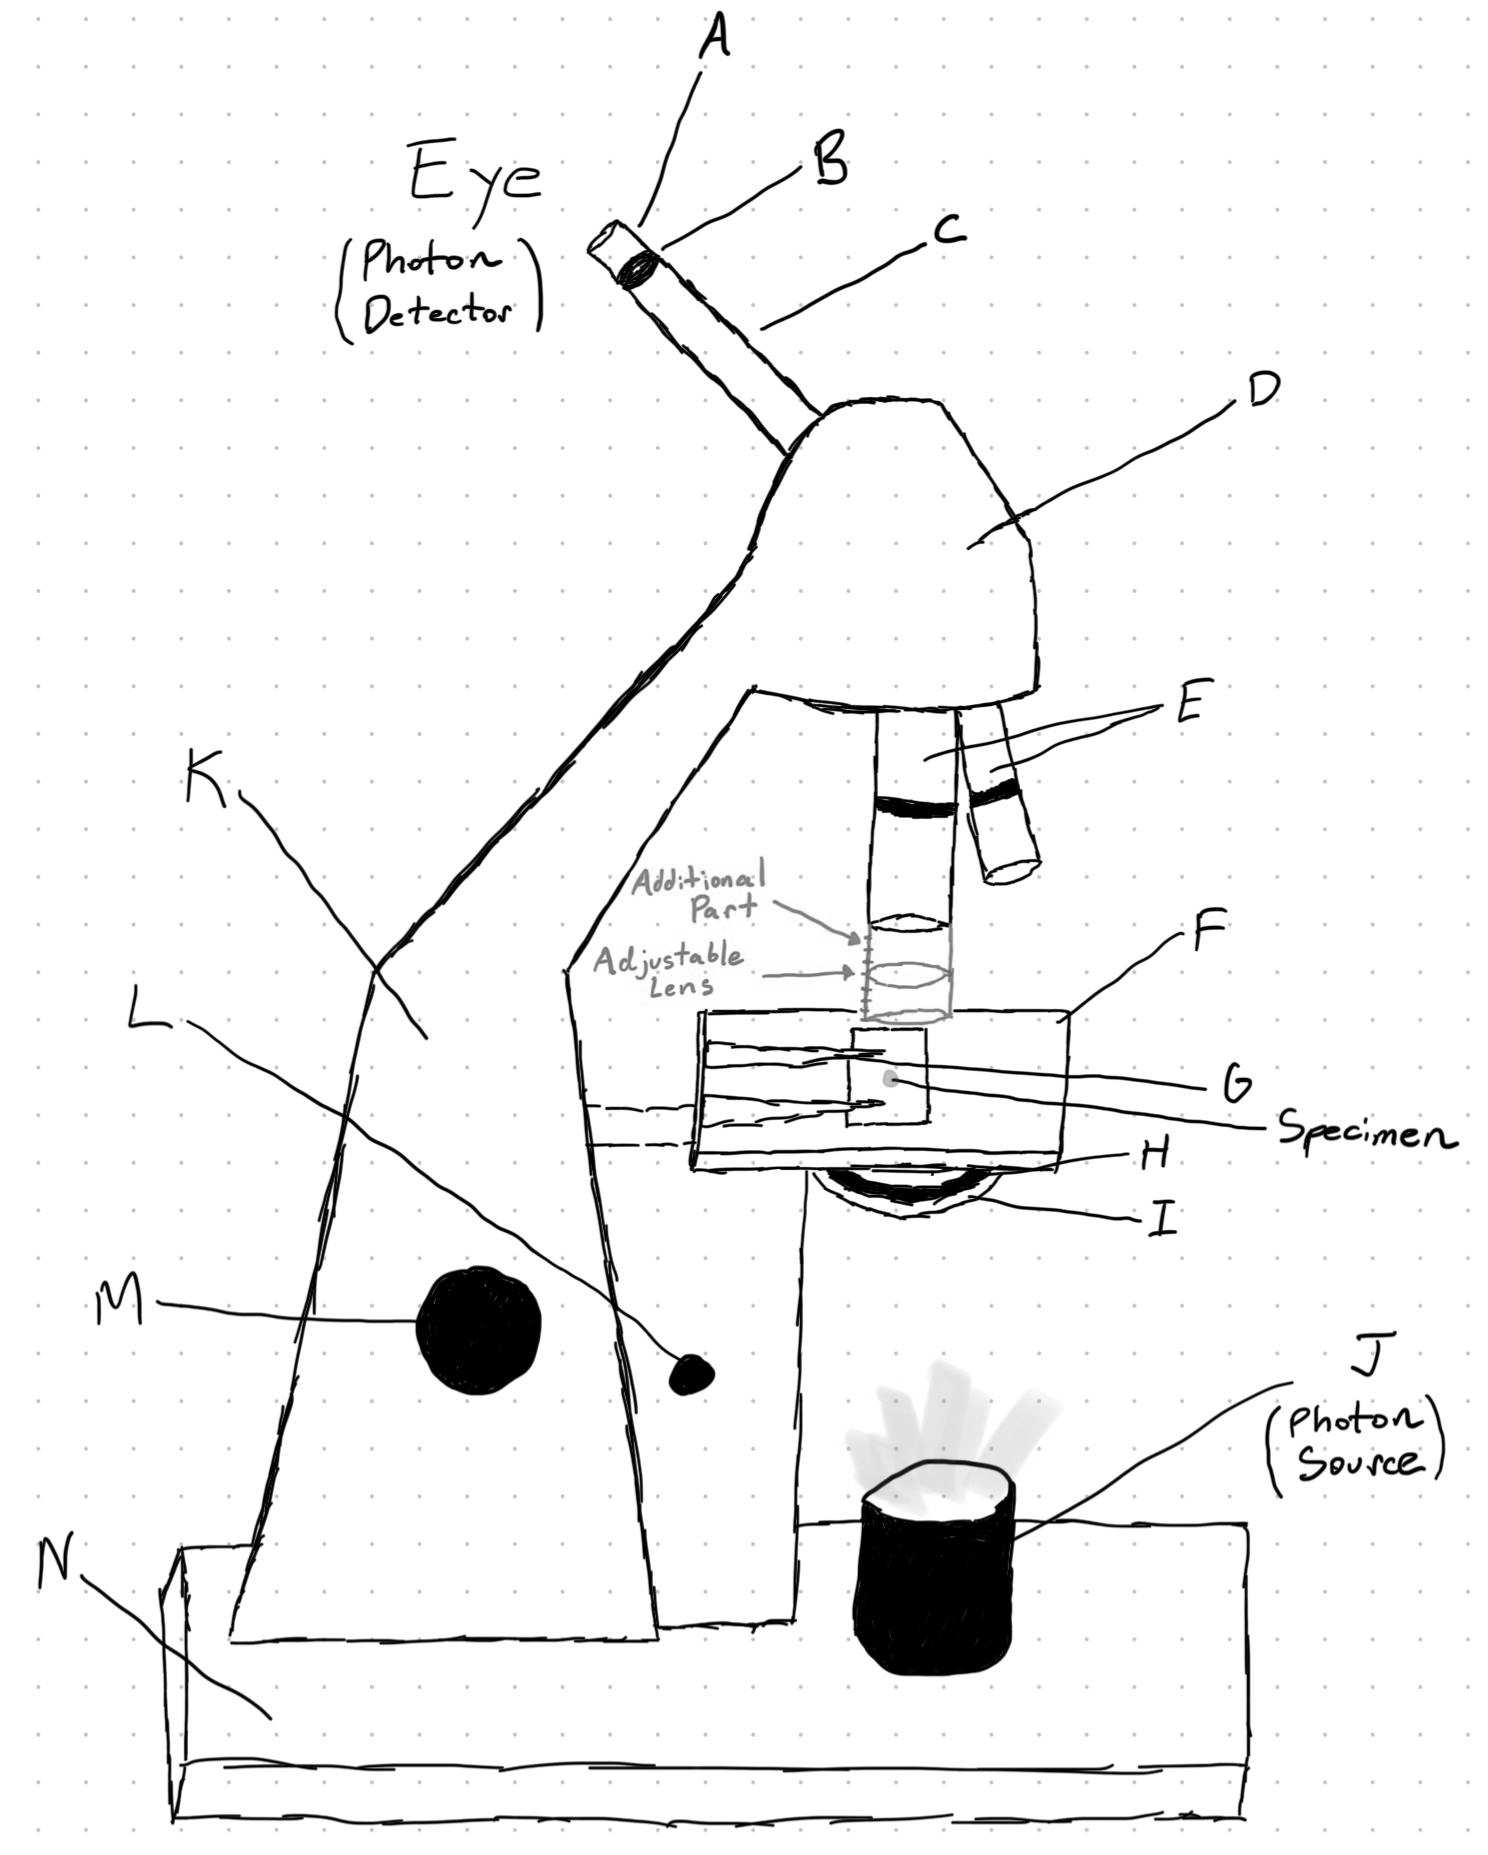 A
B
Eye
(Photon
Detector)
C
D
E
K
Additional
Part
F
Adjustable
Lens
L
G
Specimen
H
I
M
J
(Photon
Source)
N